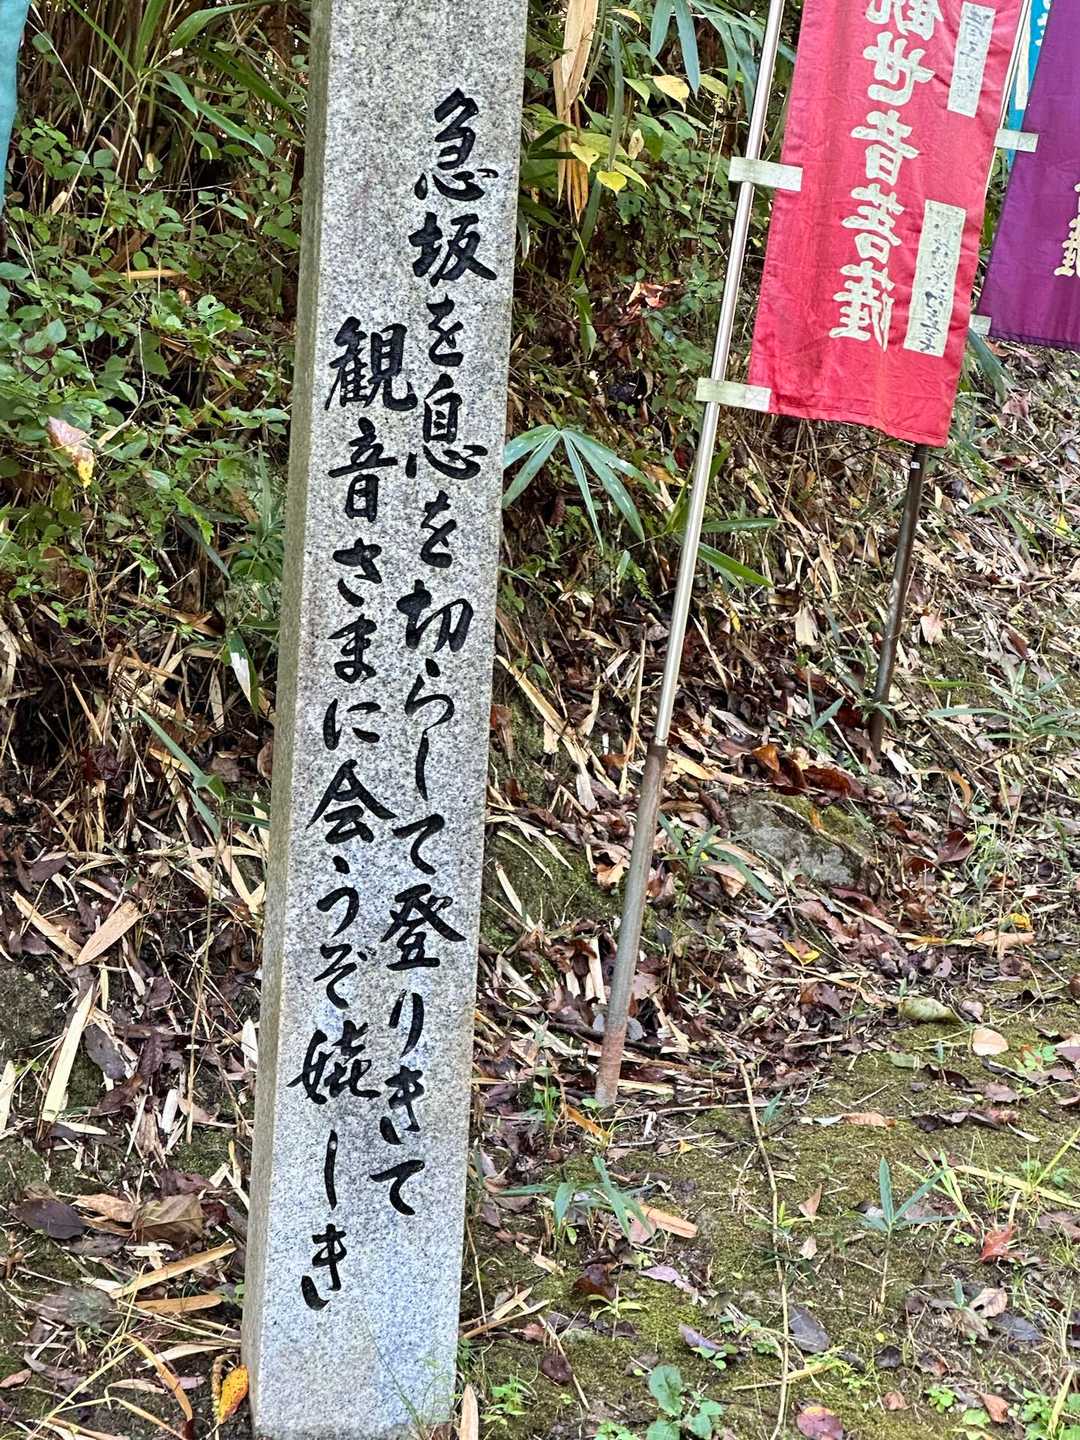 急坂を息を切らして登りきて
観音さまに会うぞ嬉しき
世音菩薩